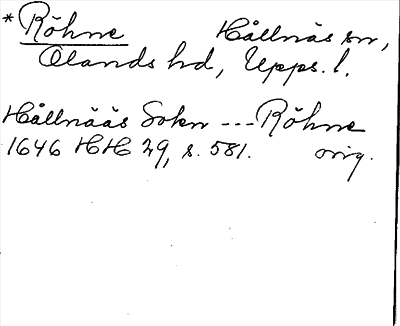 *Röhne Hållnäs sn,
Olands hd, Upps. l.
Hållnääs Sokn --- Röhne
1646 HH 29, s. 581. orig.